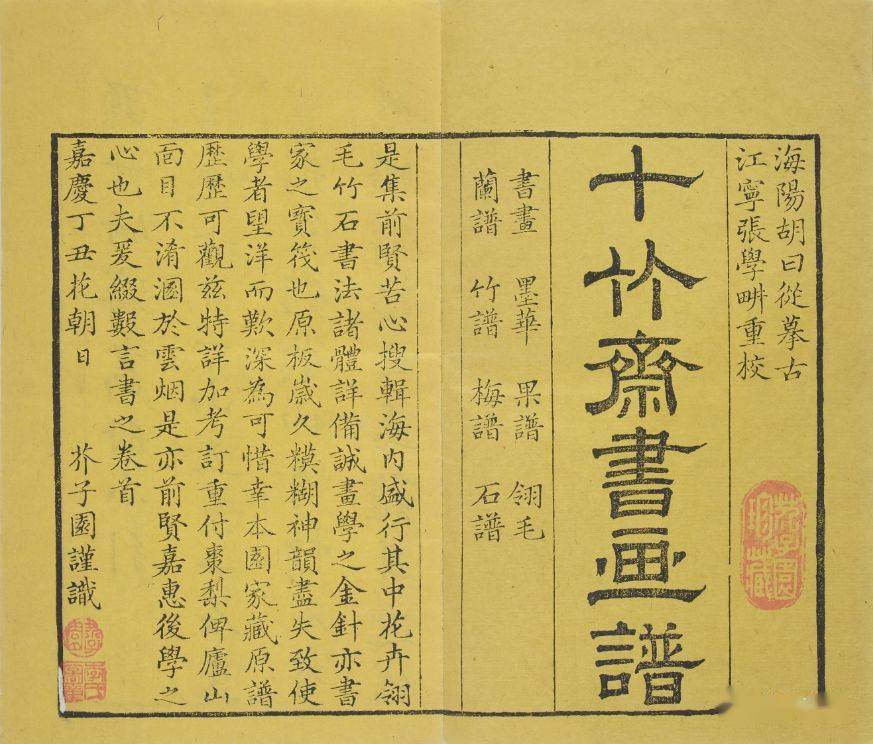 海陽胡曰從摹古
江寧張學畊重校
芥子園
珍藏
十竹齋書画譜
書畫 墨華 果譜 翎毛
蘭譜 竹譜 梅譜 石譜
是集前賢苦心搜輯海内盛行其中花卉翎
毛竹石書法諸體詳備誠畫學之金針亦書
家之寶筏也原板歲久糢糊神韻盡失致使
學者望洋而歎深為可惜幸本園家藏原譜
歷歷可觀茲特詳加考訂重付棗梨俾廬山
面目不淆溷於雲烟是亦前賢嘉惠後學之
心也夫爰綴數言書之卷首
嘉慶丁丑花朝日 芥子園謹識